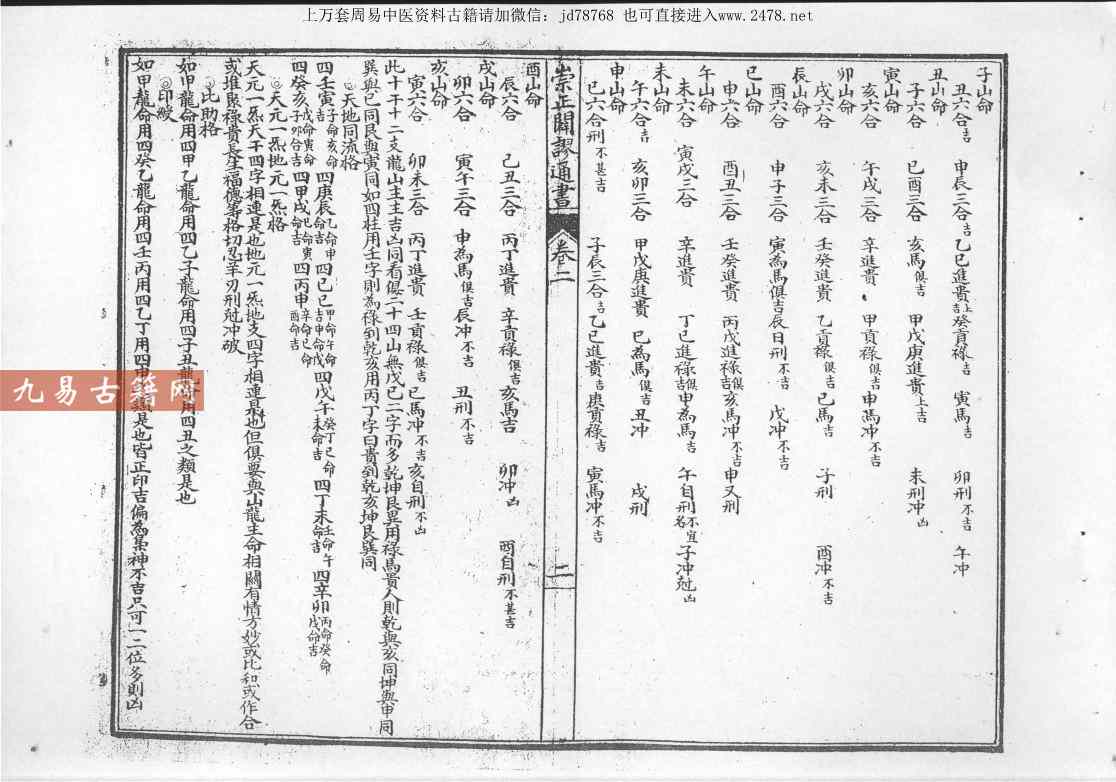 上万套周易中医资料古籍请加微信：jd78768 也可直接进入www.2478.net
子山命
丑六合吉 申辰三合吉 乙己進貴上吉 癸貢祿吉 寅馬吉 卯刑不吉 午冲
丑山命
子六合 巳酉三合 亥馬俱吉 甲戊庚進貴上吉 未刑冲凶
寅山命
亥六合 午戌三合 辛進貴 甲貢祿俱吉 申馬冲不吉
卯山命
戌六合 亥未三合 壬癸進貴 乙貢祿俱吉 巳馬吉 子刑 酉冲不吉
辰山命
酉六合 申子三合 寅為馬俱吉 辰日刑不吉 戌冲不吉
巳山命
申六合 酉丑三合 壬癸進貴 丙戊進祿俱吉 亥馬冲不吉 申又刑
午山命
未六合 寅戌三合 辛進貴 丁己進祿俱吉 申為馬吉 午自刑不宜 子冲尅凶
未山命
午六合吉 亥卯三合 甲戊庚進貴 巳為馬俱吉 丑冲 戌刑
申山命
巳六合刑不甚吉 子辰三合吉 乙己進貴吉 庚貢祿吉 寅馬冲不吉
崇正闢謬通書 卷二 二
酉山命
辰六合 巳丑三合 丙丁進貴 辛貢祿俱吉 亥馬吉 卯冲凶 酉自刑不甚吉
戌山命
卯六合 寅午三合 申為馬俱吉 辰冲不吉 丑刑不吉
亥山命
寅六合 卯未三合 丙丁進貴 壬貢祿俱吉 巳馬冲不吉 亥自刑不凶
此十干十二支龍山主吉凶同看俱二十四山無戊己二字而多乾坤艮巽用祿馬貴人則乾與亥同坤與申同
巽與巳同艮與寅同如四柱用壬字則為祿到乾亥用丙丁字曰貴到乾亥坤艮巽同
◎天地同流格
四壬寅 四庚辰 四己巳 四戊午 四丁未 四辛卯
四癸亥 四甲戌 四丙申
◎天元一炁地元一炁格
天元一炁天干四字相連是也地元一炁地支四字相連是也但俱要與山龍主命相關有情方妙或比和或作合
或堆聚祿貴長生福德等格切忌羊刃刑尅冲破
◎比助格
如甲龍命用四甲乙龍命用四乙子龍命用四子丑龍命用四丑之類是也
◎印綬
如甲龍命用四癸乙龍命用四壬丙用四乙丁用四甲之類是也皆正印吉偏為梟神不吉只可一二位多則凶
九易古籍网